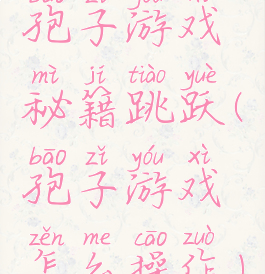 bāo zǐ yóu xì
孢子游戏
mì jí tiào yuè
秘籍跳跃(
bāo zǐ yóu xì
孢子游戏
zěn me cāo zuò
怎么操作)